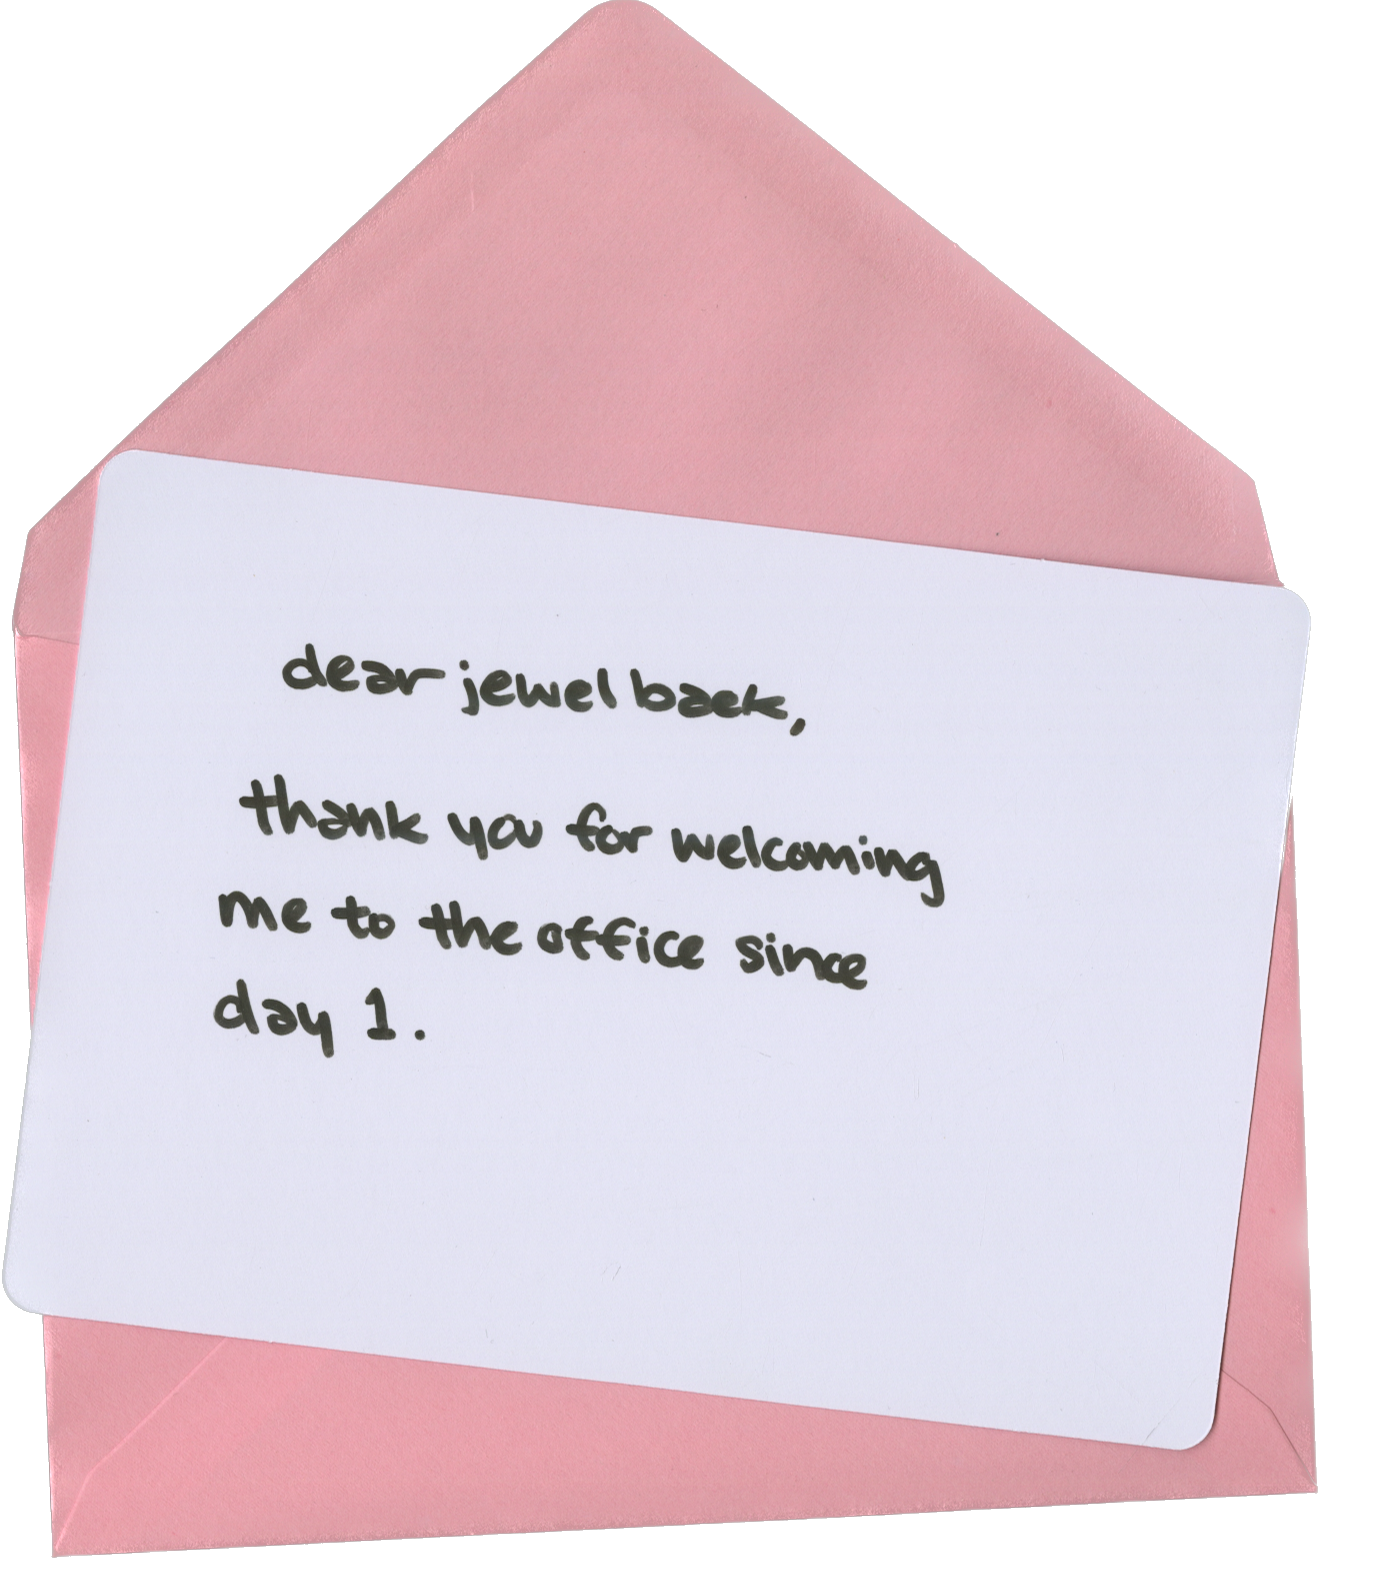 dear jewel baek,
thank you for welcoming
me to the office since
day 1.